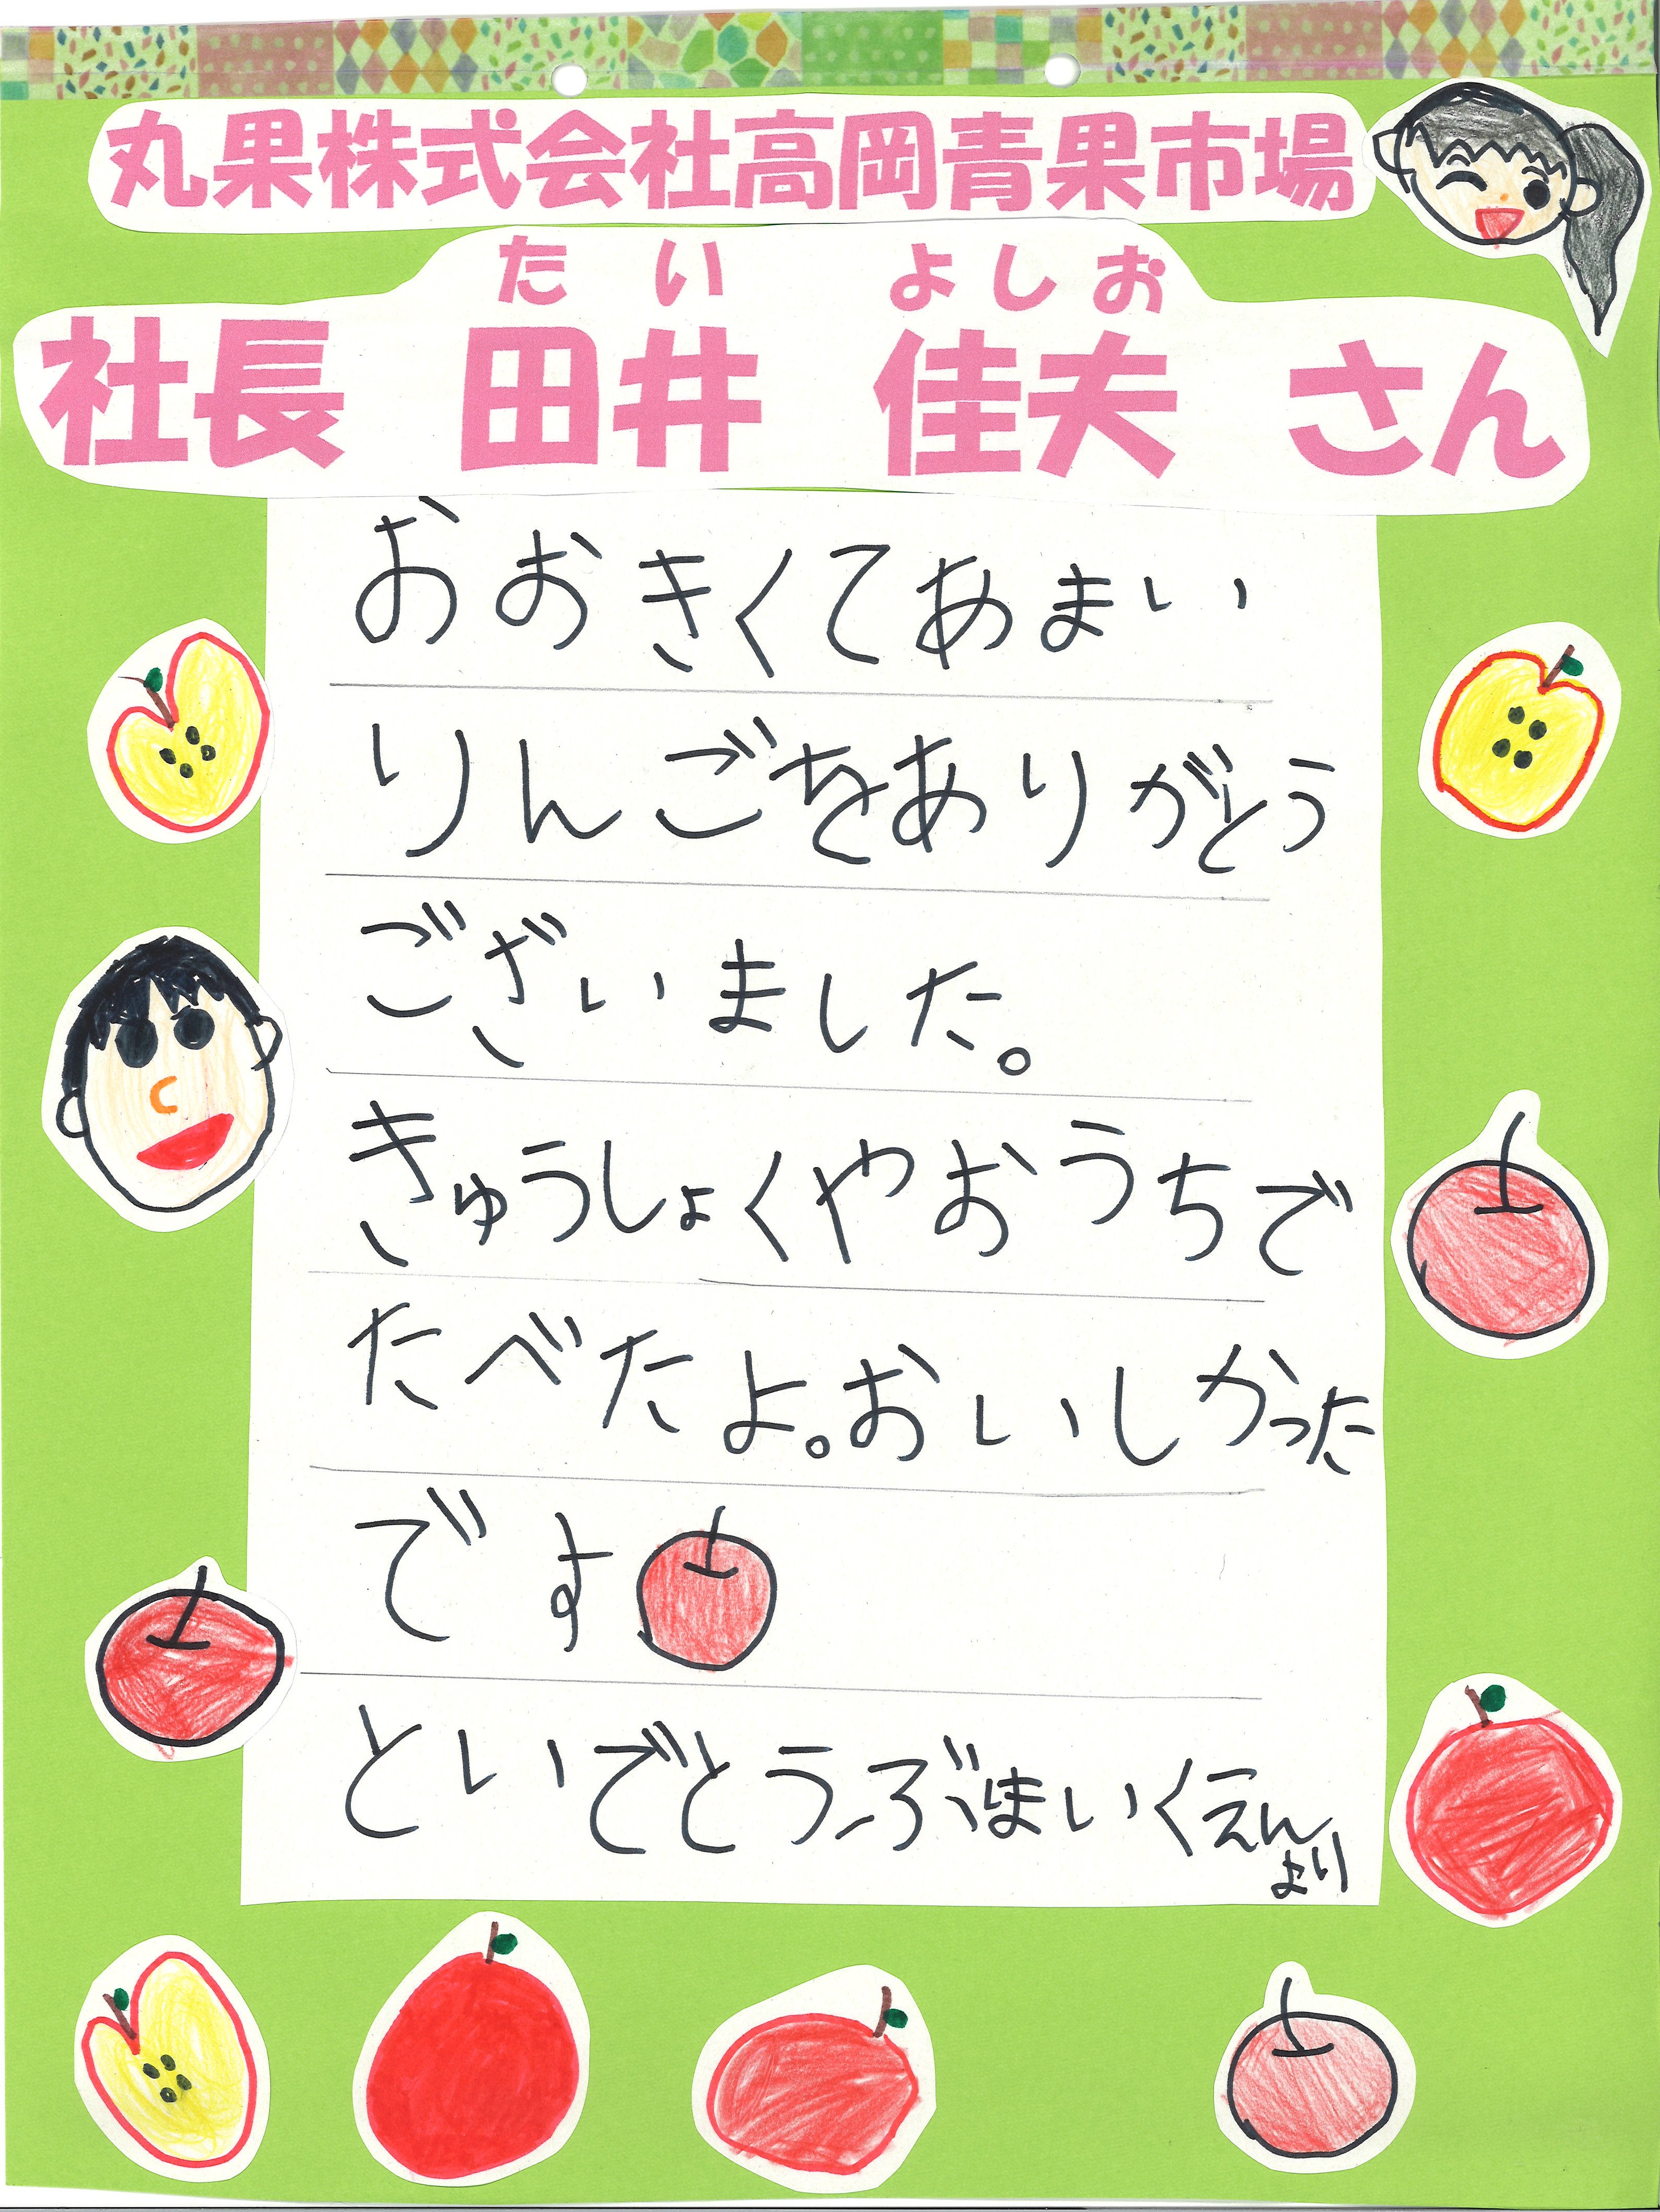 丸果株式会社高岡青果市場
たい よしお
社長 田井 佳夫 さん
おおきくてあまい
りんごをありがとう
ございました。
きゅうしょくやおうちで
たべたよ。おいしかった
です
といでとうぶほいくえん
より